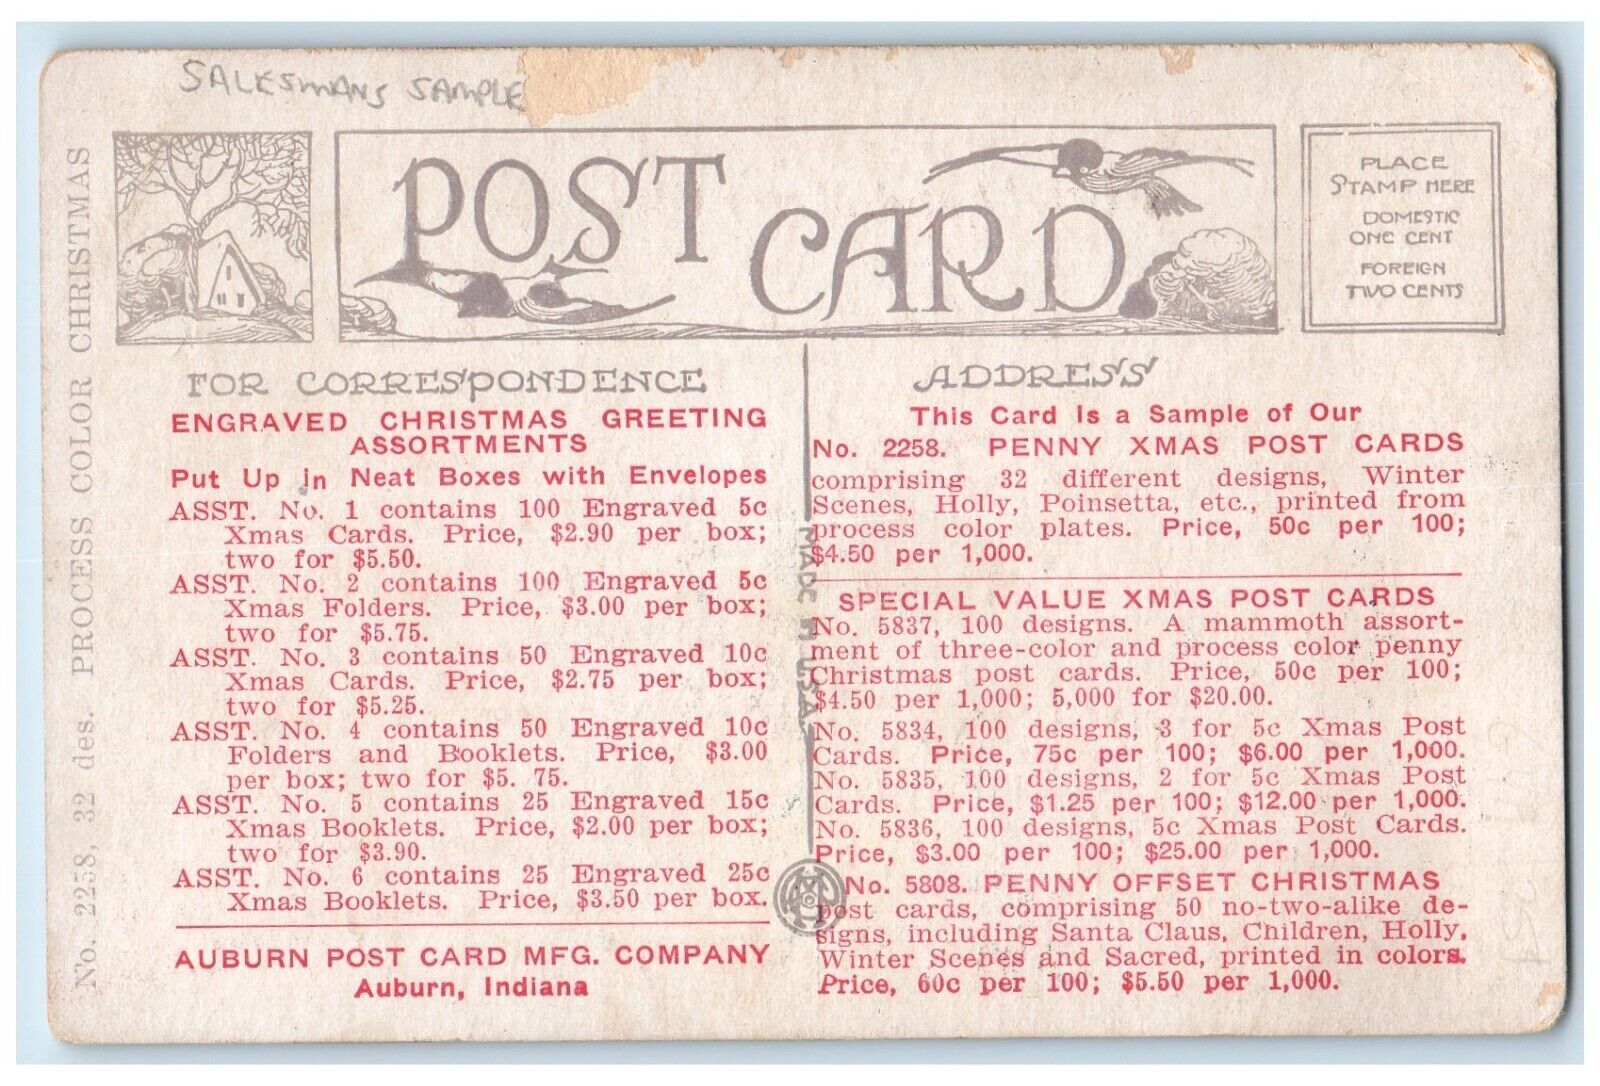 SALESMANS SAMPLE
POST CARD
PLACE
STAMP HERE
DOMESTIC
ONE CENT
FOREIGN
TWO CENTS
No. 2258, 32 des. PROCESS COLOR CHRISTMAS
FOR CORRESPONDENCE
ENGRAVED CHRISTMAS GREETING
ASSORTMENTS
Put Up in Neat Boxes with Envelopes
ASST. No. 1 contains 100 Engraved 5c
Xmas Cards. Price, $2.90 per box;
two for $5.50.
ASST. No. 2 contains 100 Engraved 5c
Xmas Folders. Price, $3.00 per box;
two for $5.75.
ASST. No. 3 contains 50 Engraved 10c
Xmas Cards. Price, $2.75 per box;
two for $5.25.
ASST. No. 4 contains 50 Engraved 10c
Folders and Booklets. Price, $3.00
per box; two for $5. 75.
ASST. No. 5 contains 25 Engraved 15c
Xmas Booklets. Price, $2.00 per box;
two for $3.90.
ASST. No. 6 contains 25 Engraved 25c
Xmas Booklets. Price, $3.50 per box.
AUBURN POST CARD MFG. COMPANY
Auburn, Indiana
MADE IN U.S.A.
ADDRESS
This Card Is a Sample of Our
No. 2258. PENNY XMAS POST CARDS
comprising 32 different designs, Winter
Scenes, Holly, Poinsetta, etc., printed from
process color plates. Price, 50c per 100;
$4.50 per 1,000.
SPECIAL VALUE XMAS POST CARDS
No. 5837, 100 designs. A mammoth assort-
ment of three-color and process color penny
Christmas post cards. Price, 50c per 100;
$4.50 per 1,000; 5,000 for $20.00.
No. 5834, 100 designs, 3 for 5c Xmas Post
Cards. Price, 75c per 100; $6.00 per 1,000.
No. 5835, 100 designs, 2 for 5c Xmas Post
Cards. Price, $1.25 per 100; $12.00 per 1,000.
No. 5836, 100 designs, 5c Xmas Post Cards.
Price, $3.00 per 100; $25.00 per 1,000.
No. 5808. PENNY OFFSET CHRISTMAS
post cards, comprising 50 no-two-alike de-
signs, including Santa Claus, Children, Holly,
Winter Scenes and Sacred, printed in colors.
Price, 60c per 100; $5.50 per 1,000.